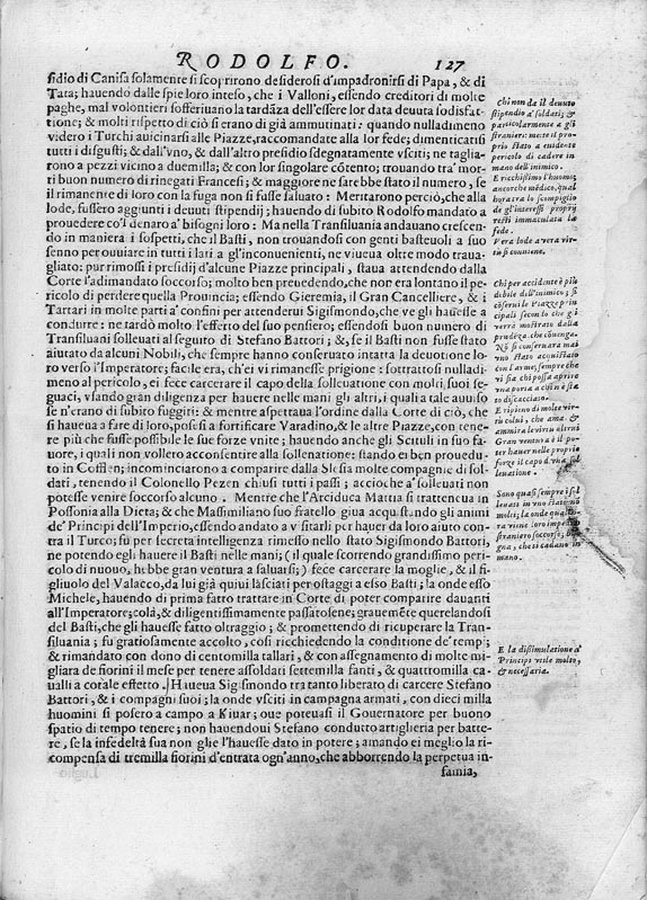 RODOLFO. 127
sidio di Canisa solamente si scoprirono desiderosi d'impadronirsi di Papa, & di
Tata; hauendo dalle spie loro inteso, che i Valloni, essendo creditori di molte
paghe, mal volontieri sofferiuano la tardãza dell'essere lor data deuuta sodisfat-
tione; & molti rispetto di ciò si erano di già ammutinati: quando nulladimeno
videro i Turchi auicinarsi alle Piazze, raccomandate alla lor fede; dimenticatisi
tutti i disgusti; & dall'vno, & dall'altro presidio sdegnatamente vsciti; ne taglia-
rono a pezzi vicino a duemilla; & con lor singolare cõtento; trouando tra' mor-
ti buon numero di rinegati Francesi; & maggiore ne sarebbe stato il numero, se
il rimanente di loro con la fuga non si fusse saluato: Meritarono perciò, che alla
lode, fussero aggiunti i deuuti stipendij; hauendo di subito Rodolfo mandato a
prouedere co'l denaro a' bisogni loro: Ma nella Transiluania andauano crescen-
do in maniera i sospetti, che il Basti, non trouandosi con genti basteuoli a suo
senno per ouuiare in tutti i lati a gl'inconuenienti, ne viueua oltre modo traua-
gliato: pur rimossi i presidij d'alcune Piazze principali, staua attendendo dalla
Corte l'adimandato soccorso; molto ben preuedendo, che non era lontano il pe-
ricolo di perdere quella Prouincia; essendo Gieremia, il Gran Cancelliere, & i
Tartari in molte parti a' confini per attenderui Sigismondo, che ve gli hauesse a
condurre: ne tardò molto l'effetto del suo pensiero; essendosi buon numero di
Transiluani solleuati al seguito di Stefano Battori; &, se il Basti non fusse stato
aiutato da alcuni Nobili, che sempre hanno conseruato intatta la deuotione lo-
ro verso l'Imperatore; facile era, ch'ei vi rimanesse prigione: sottrattosi nulladi-
meno al pericolo, ei fece carcerare il capo della solleuatione con molti suoi se-
guaci, vsando gran diligenza per hauere nelle mani gli altri, i quali a tale auuiso
se n'erano di subito fuggiti: & mentre aspettaua l'ordine dalla Corte di ciò, che
si haueua a fare di loro, posesi a fortificare Varadino, & le altre Piazze, con tene-
re più che fusse possibile le sue forze vnite; hauendo anche gli Scituli in suo fa-
uore, i quali non vollero acconsentire alla solleuatione: stando ei ben prouedu-
to in Cossen; incominciarono a comparire dalla Slesia molte compagnie di sol-
dati, tenendo il Colonello Pezen chiusi tutti i passi; accioche a' solleuati non
potesse venire soccorso alcuno. Mentre che l'Arciduca Mattia si trattenea in
Possonia alla Dieta; & che Massimiliano suo fratello giua acquistando gli animi
de' Principi dell'Imperio, essendo andato a visitarli per hauer da loro aiuto con-
tra il Turco; fù per secreta intelligenza rimesso nello stato Sigismondo Battori,
ne potendo egli hauere il Basti nelle mani; (il quale scorrendo grandissimo peri-
colo di nuouo, hebbe gran ventura a saluarsi;) fece carcerare la moglie, & il fi-
gliuolo del Valacco, da lui già quiui lasciati per ostaggi a esso Basti; la onde esso
Michele, hauendo di prima fatto trattare in Corte di poter comparire dauanti
all'Imperatore; colà, & diligentissimamente passatosene; grauemẽte querelandosi
del Basti, che gli hauesse fatto oltraggio; & promettendo di ricuperare la Tran-
siluania; fu gratiosamente accolto, così richiedendo la conditione de' tempi;
& rimandato con dono di centomilla tallari, & con assegnamento di molte mi-
gliara de fiorini il mese per tenere assoldati settemilla fanti, & quattromilla ca-
ualli a cotale effetto. Haueua Sigismondo tra tanto liberato di carcere Stefano
Battori, & i compagni suoi; la onde vsciti in campagna armati, con dieci milla
huomini si posero a campo a Kiuar; oue poteuasi il Gouernatore per buono
spatio di tempo tenere; non hauendoui Stefano condutto artigleria per batte-
re, se la infedeltà sua non glie l'hauesse dato in potere; amando ei meglio la ri-
compensa di tremilla fiorini d'entrata ogn'anno, che abborrendo la perpetua in-
famia,
Chi non da il deuuto
stipendio a' soldati; &
particolarmente a gli
stranieri: mette il pro-
prio stato a euidente
pericolo di cadere in
mano dell'inimico.
E ricchissimo l'huomo;
ancorche mèdico, qual
hora tra lo scompiglio
de gl'interessi proprij
resti immaculata la
fede.
Vera lode a vera vir-
tù si conuiene.
Chi per accidente è più
debile dell'inimico; si
cõserui le Piazze prin-
cipali secondo che gli
verrà mostrato dalla
prudẽza che cõuenga.
Nõ si conseruarà mai
vno stato acquistato
con l'arme, sempre che
vi sia chi possa aprire
vna porta a chi n'è sta-
to discacciato.
E ripieno di molte vir-
tù colui, che ama, &
ammira le virtù altrui
Gran ventura è il po-
ter hauer nelle proprie
forze il capo d'vna sol-
leuatione.
Sono quasi sempre i sol
leuati in vno stato no
molti; la onde qual
ra viene loro
straniero soccorso;
gna, che si cadano in
mano.
E la dissimulatione a'
Principi vtile molto,
& necessaria.